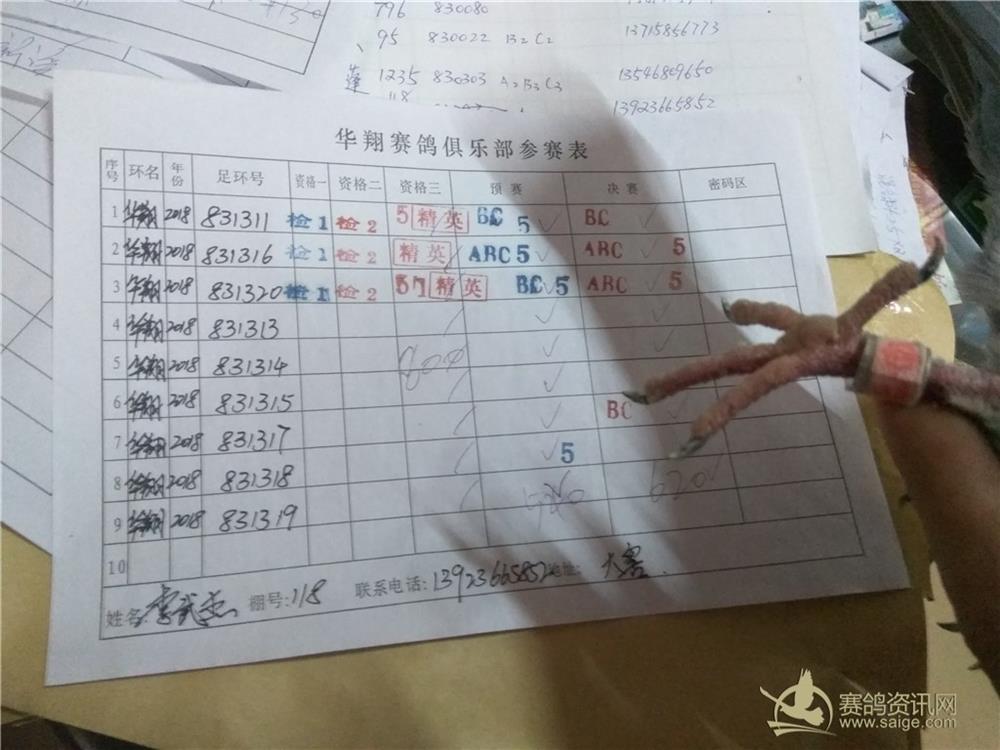 796 830080
95 830022 B2C2 13715856773
莲 1235 830303 A2B3C3 13546809650
118 13923665852
华翔赛鸽俱乐部参赛表
序号 环名 年份 足环号 资格一 资格二 资格三 预赛 决赛 密码区
1 华翔 2018 831311 检1 检2 5 精英 BC 5 ✓ BC ✓
2 华翔 2018 831316 检1 检2 精英 ABC 5 ✓ ABC ✓ 5
3 华翔 2018 831320 检1 检2 精英 BC ✓ 5 ABC ✓ 5
4 华翔 2018 831313 ✓
5 华翔 2018 831314 800 ✓ ✓
6 华翔 2018 831315 ✓ BC ✓
7 华翔 2018 831317 ✓
8 华翔 2018 831318 ✓ 5 ✓
9 华翔 2018 831319 620
10
姓名: 李武 棚号: 118 联系电话: 13923665852 地址: 大
赛鸽资讯网
www.saige.com